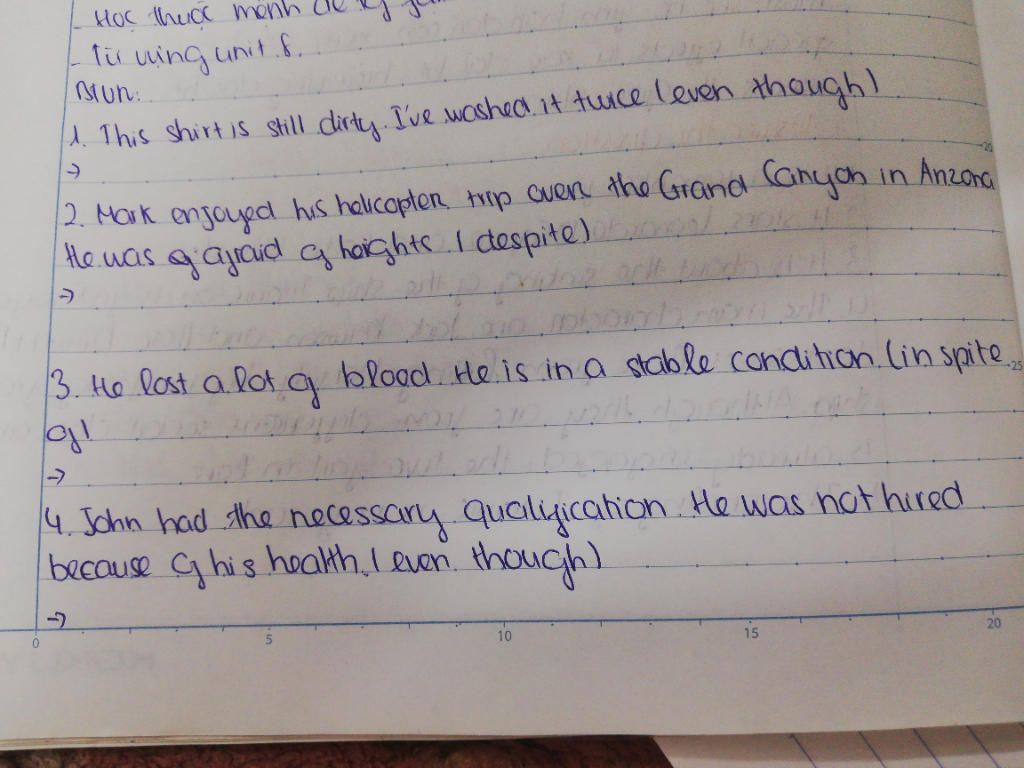 - Học thuộc mệnh đề
- Từ vựng unit 8.
BTVN:
1. This shirt is still dirty. I've washed it twice (even though)
→
2. Mark enjoyed his helicopter trip over the Grand Canyon in Arizona
He was of afraid of heights. (despite)
→
3. He lost a lot of blood. He is in a stable condition. (in spite
of)
→
4. John had the necessary qualification. He was not hired
because of his health. (even though)
→
0 5 10 15 20
20
25